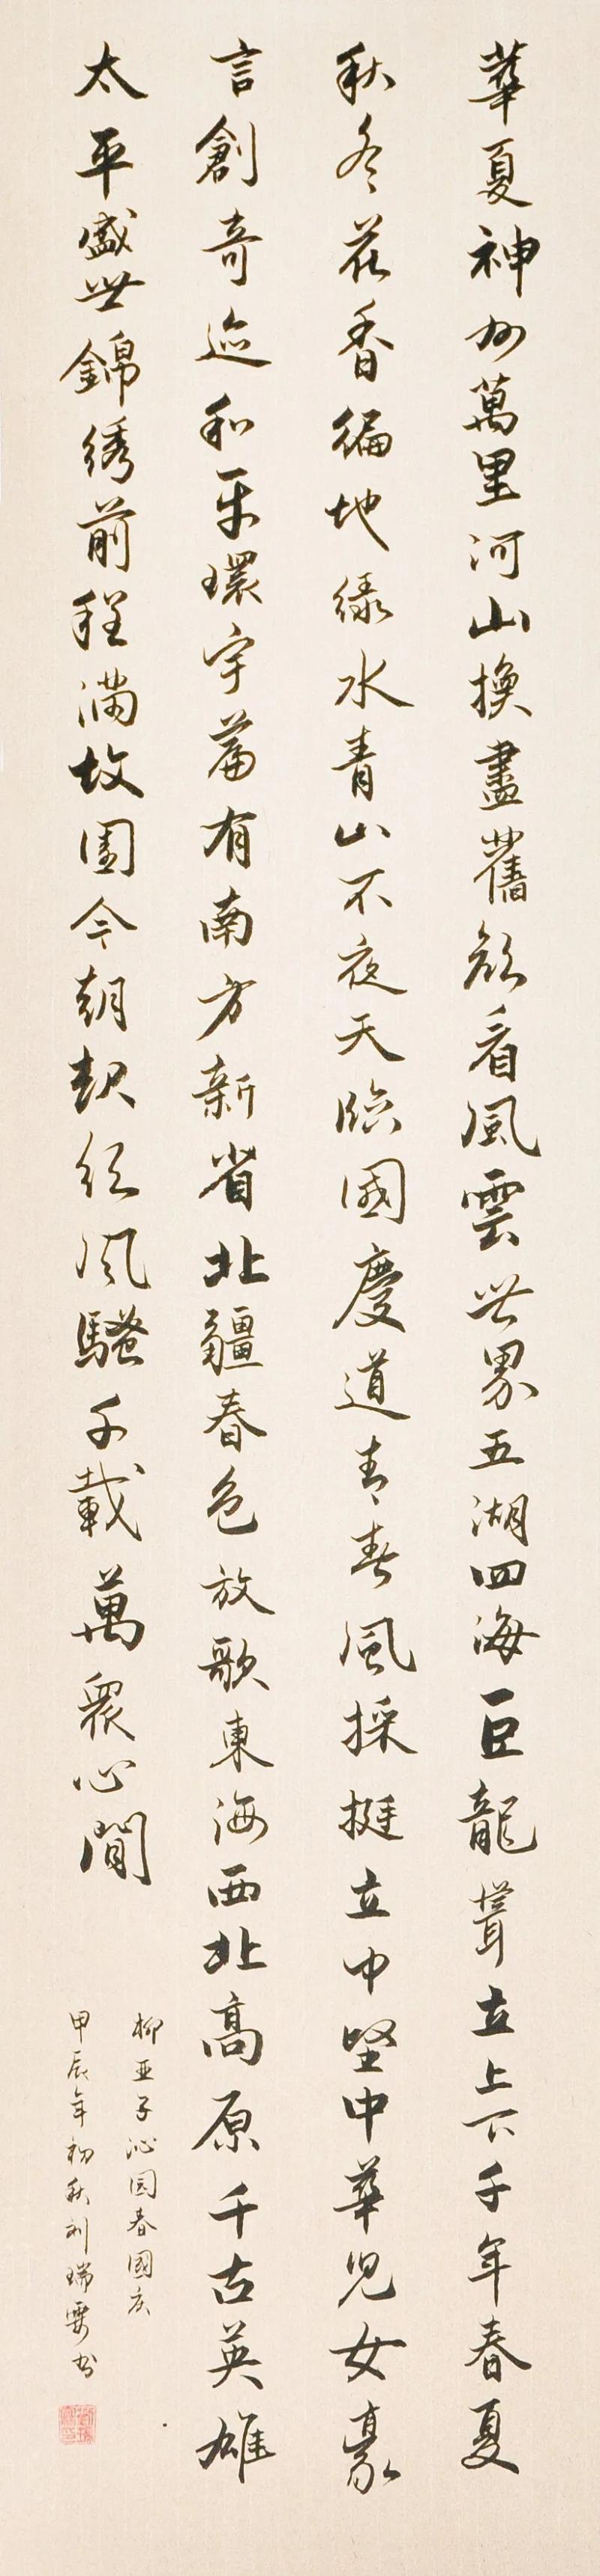 華夏神州萬里河山換盡舊顏看風雲世界五湖四海巨龍聳立上下千年春夏
秋冬花香徧地綠水青山不夜天臨國慶道青春風採挺立中堅中華児女豪
言創奇迹和平環宇篇有南方新省北疆春色放歌東海西北高原千古英雄
太平盛世錦绣前程滿故園今朝款待風騷千載萬衆心間
柳亚子沁园春國庆
甲辰年初秋刘瑞雯书